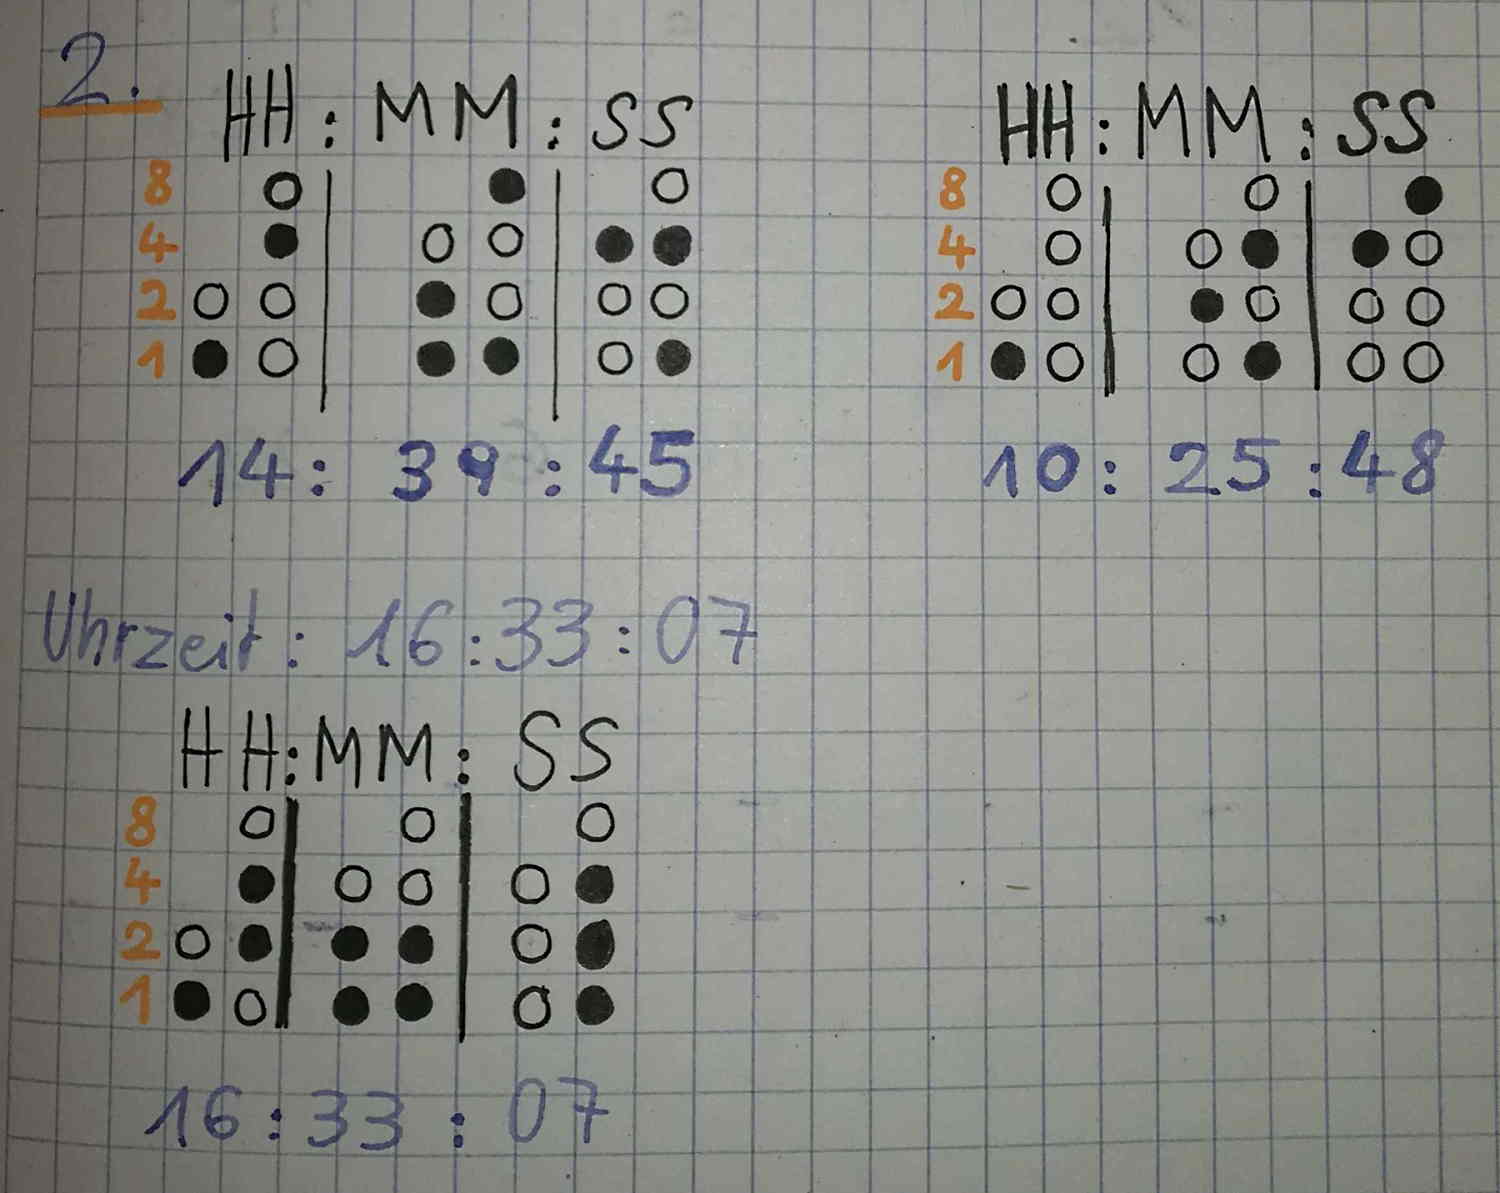 2.
HH : MM : SS
8
4
2
1
14 : 39 : 45
HH : MM : SS
8
4
2
1
10 : 25 : 48
Uhrzeit : 16:33:07
HH:MM: SS
8
4
2
1
16:33 : 07